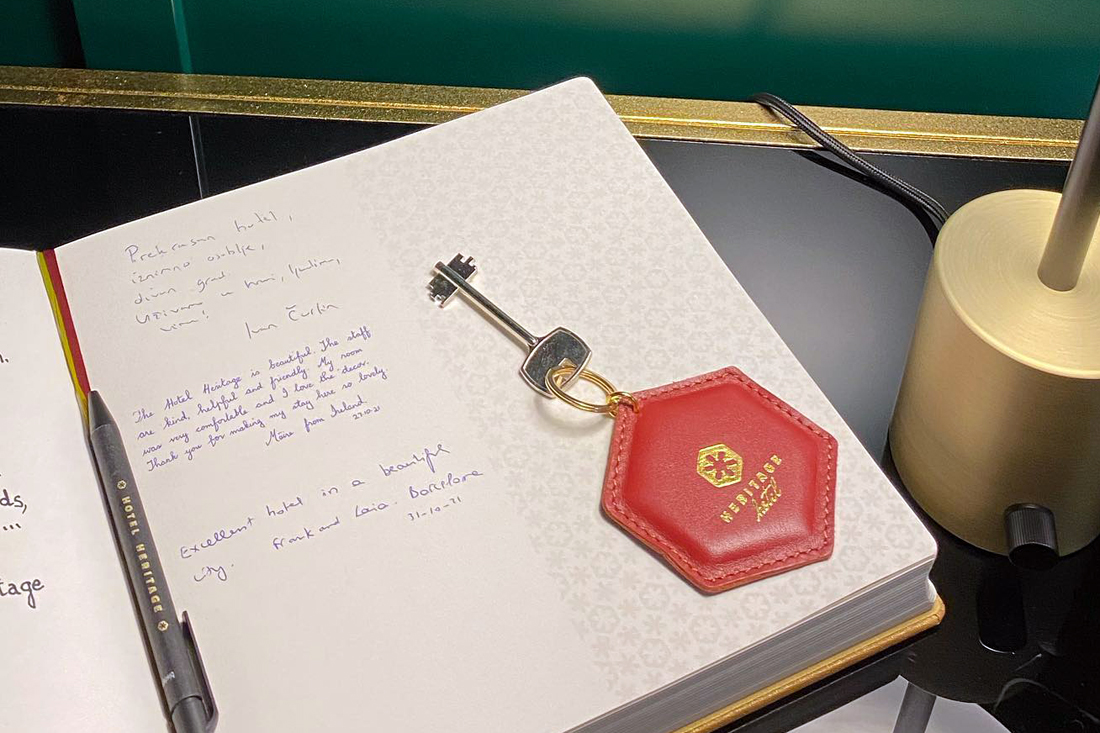 n.
ds,
...
tage
Prekrasan hotel,
iznimno osoblje,
divan grad.
Uživamo u hrani, ljudima,
vinu!
Ivan
The Hotel Heritage is beautiful. The staff
are kind, helpful and friendly. My room
was very comfortable and I love the decor.
Thank you for making my stay here so lovely
Máire from Ireland.
Excellent hotel in a beautiful
city.
Frank and Laia. Barcelona
31-10-21
HOTEL HERITAGE
HERITAGE
Hotel